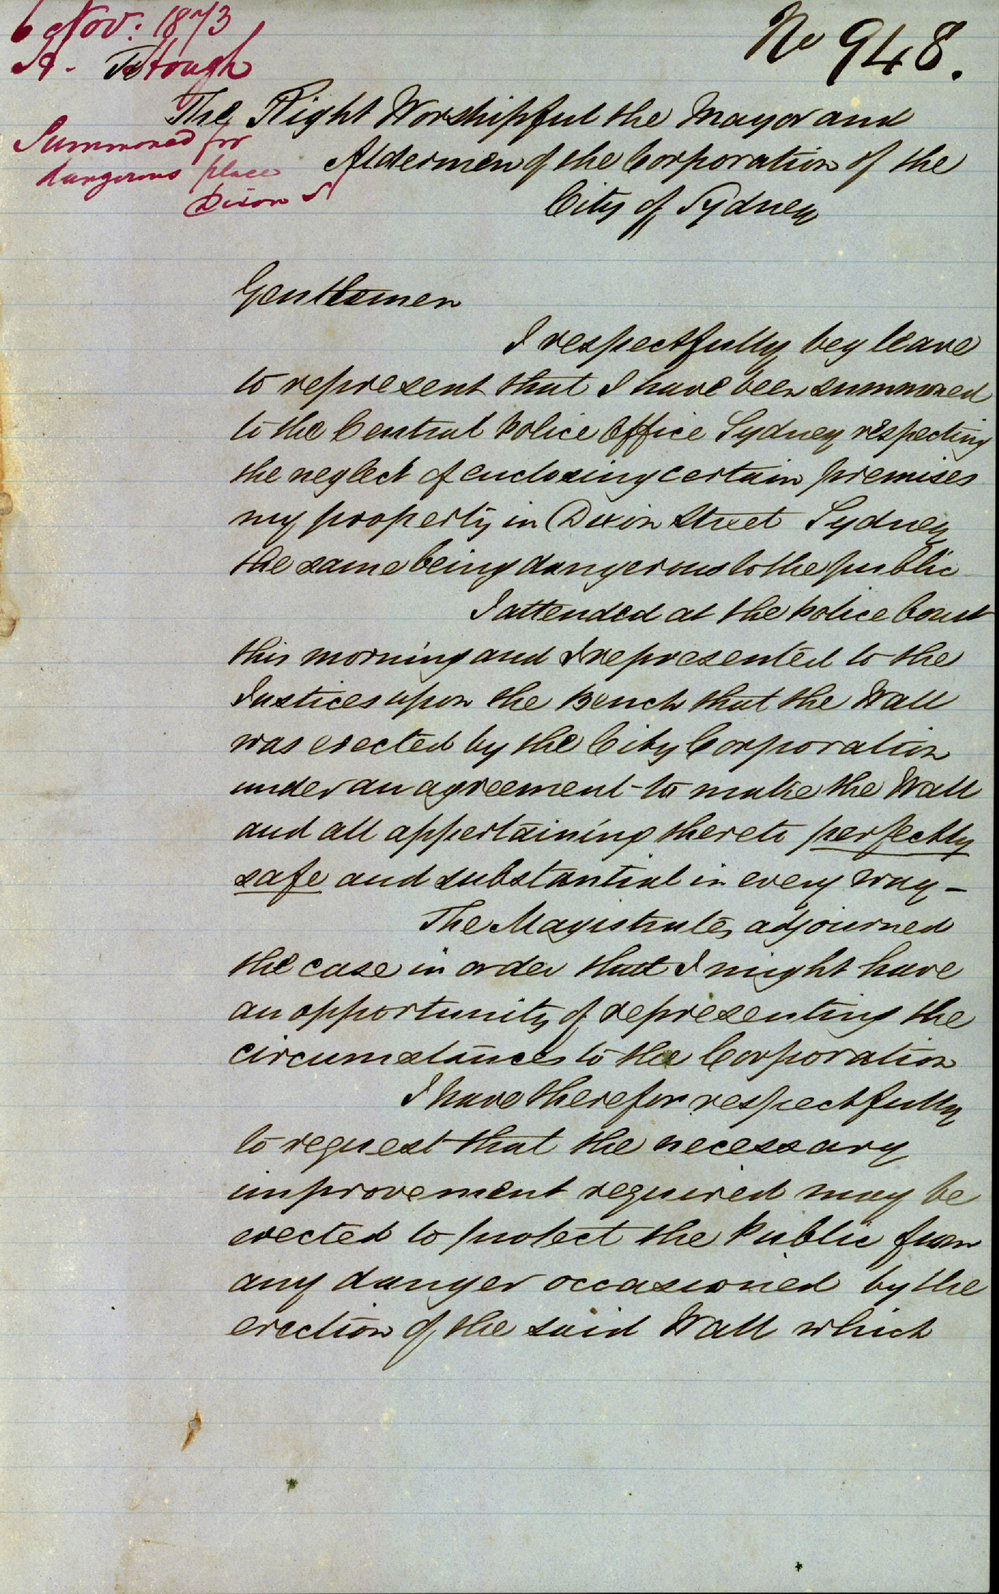 6 Nov: 1873
No 948.
A. Hough
To
The Right Worshipful the Mayor and
Summoned for
dangerous place
Dixon St
Aldermen of the Corporation of the
City of Sydney
Gentlemen
I respectfully beg leave
to represent that I have been summoned
to the Central Police Office Sydney respecting
the neglect of enclosing certain premises
my property in Dixon Street Sydney
the same being dangerous to the public
I attended at the Police Court
this morning and I represented to the
Justices upon the Bench that the Wall
was erected by the City Corporation
under an agreement to make the Wall
and all appertaining thereto perfectly
safe and substantial in every way -
The Magistrates adjourned
the case in order that I might have
an opportunity of representing the
circumstances to the Corporation
I have therefor respectfully
to request that the necessary
improvement required may be
erected to protect the Public from
any danger occasioned by the
erection of the said Wall which